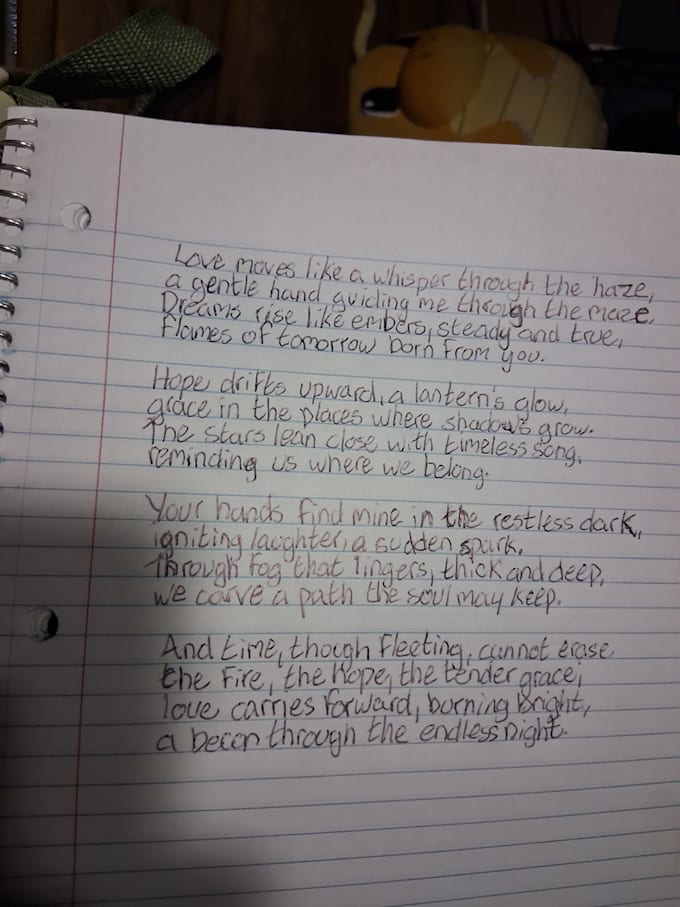 Love moves like a whisper through the haze,
a gentle hand guiding me through the maze.
Dreams rise like embers, steady and true,
flames of tomorrow born from you.
Hope drifts upward, a lantern's glow,
grace in the places where shadows grow.
The stars lean close with timeless song,
reminding us where we belong.
Your hands find mine in the restless dark,
igniting laughter, a sudden spark.
Through fog that lingers, thick and deep,
we carve a path the soul may keep.
And time, though fleeting, cannot erase
the fire, the hope, the tender grace;
love carries forward, burning bright,
a becon through the endless night.